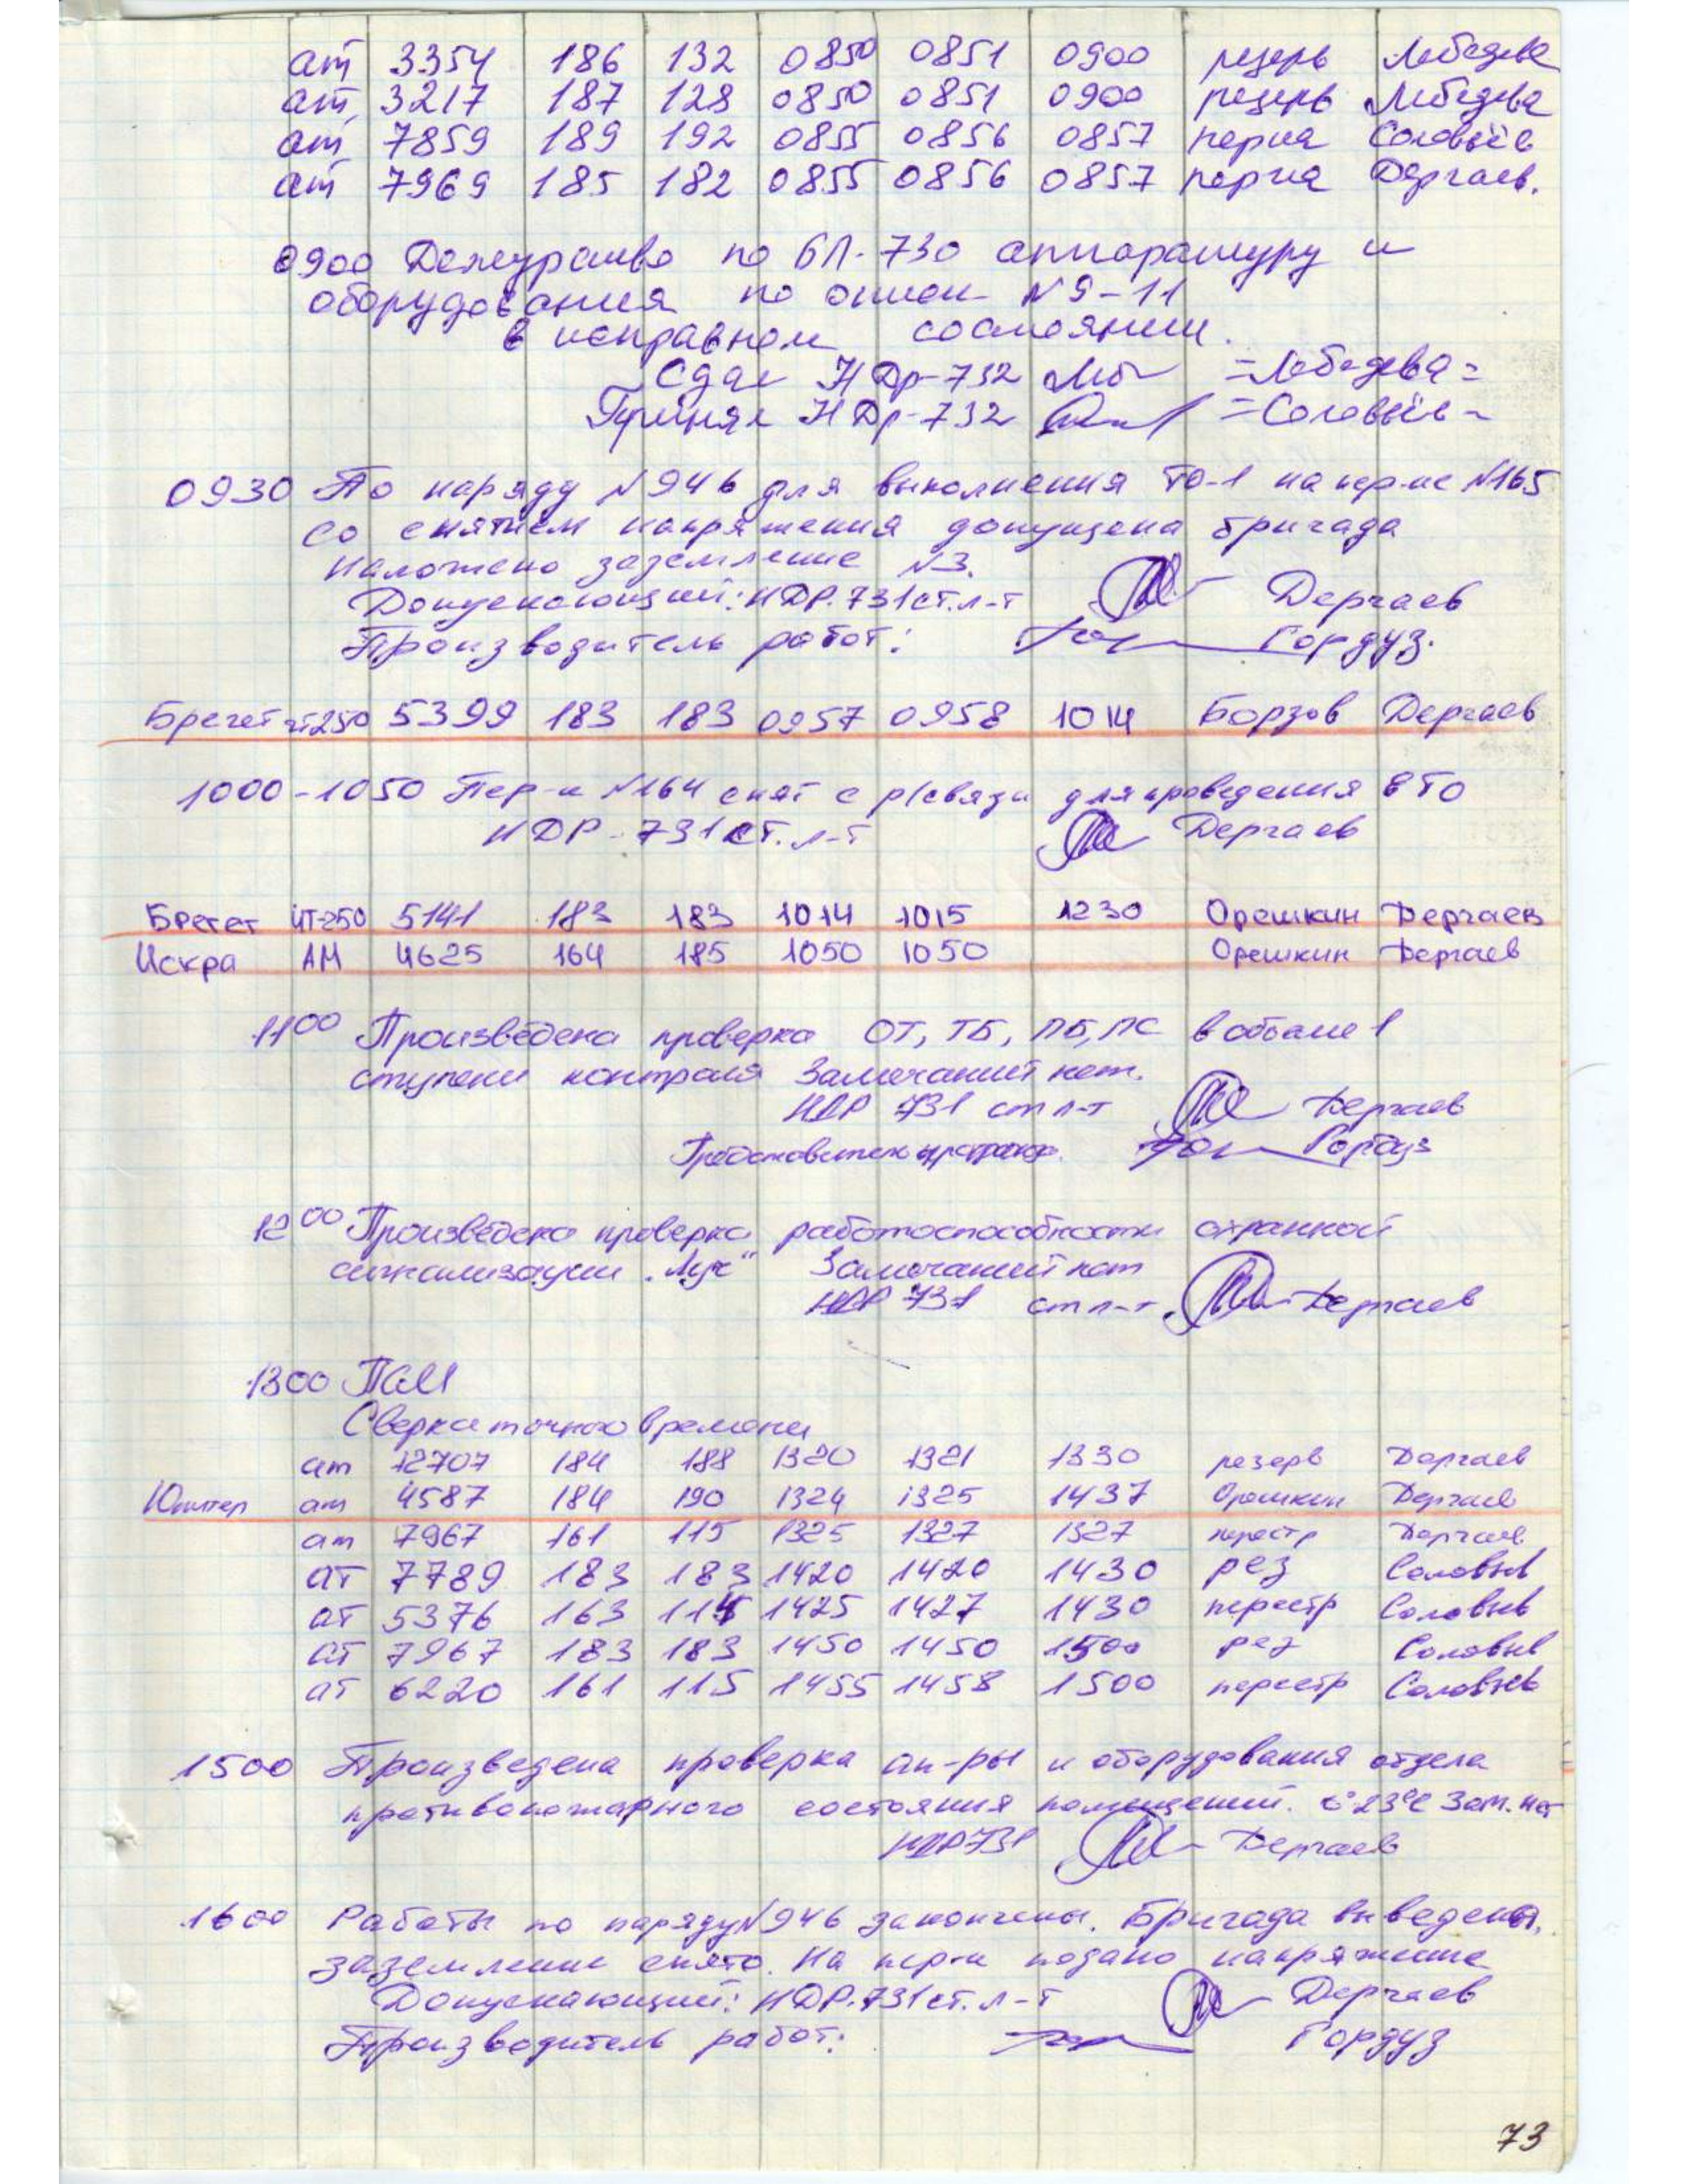 ат 3354 186 132 0850 0851 0900 резерв Лебедева
ат 3217 187 128 0850 0851 0900 резерв Лебедева
ат 7859 189 192 0855 0856 0857 Соловьёв
ат 7969 185 182 0855 0856 0857 Дергаев.
0900 Дежурство по БП-730 аппаратуру и
оборудования по описи N 9-11
в исправном состоянии.
Сдал НДр-732 =Лебедева=
Принял НДр-732 =Соловьёв=
0930 По наряду N946 для выполнения ТО-1 на пер-ке N165
со снятием напряжения допущена бригада
наложено заземление N3.
Допускающий: НДР-731 ст.л-т Дергаев
Производитель работ: Гордуз.
Брегет чт250 5399 183 183 0957 0958 1014 Борзов Дергаев
1000-1050 Пер-к N164 снят с р/связи для проведения ЕТО
НДР-731 ст. л-т Дергаев
Брегет ЧТ-250 5141 183 183 1014 1015 1230 Орешкин Дергаев
Искра АМ 4625 164 185 1050 1050 Орешкин Дергаев
1100 Произведена проверка ОТ, ТБ, ПБ, ПС в объеме 1
ступени контроля Замечаний нет.
НДР 731 ст л-т Дергаев
Представитель Гордуз
1200 Произведена проверка работоспособности охранной
сигнализации "Луч" Замечаний нет
НДР 731 ст л-т Дергаев
1300
Сверка точного времени
ат 12707 184 188 1320 1321 1330 резерв Дергаев
Юпитер ат 4587 184 190 1324 1325 1437 Орешкин Дергаев
ат 7967 161 115 1325 1327 1327 перестр Дергаев
ат 7789 183 183 1420 1420 1430 рез Соловьев
ат 5376 163 114 1425 1427 1430 перестр Соловьев
ат 7967 183 183 1450 1450 1500 рез Соловьев
ат 6220 161 115 1455 1458 1500 перестр Соловьев
1500 Произведена проверка ап-ры и оборудования отдела
противопожарного состояния помещений. t°23°С Зам. нет
НДР731 Дергаев
1600 Работы по наряду N946 закончены. Бригада выведена,
заземление снято. На пер-к подано напряжение
Допускающий: НДР-731 ст. л-т Дергаев
Производитель работ: Гордуз
73